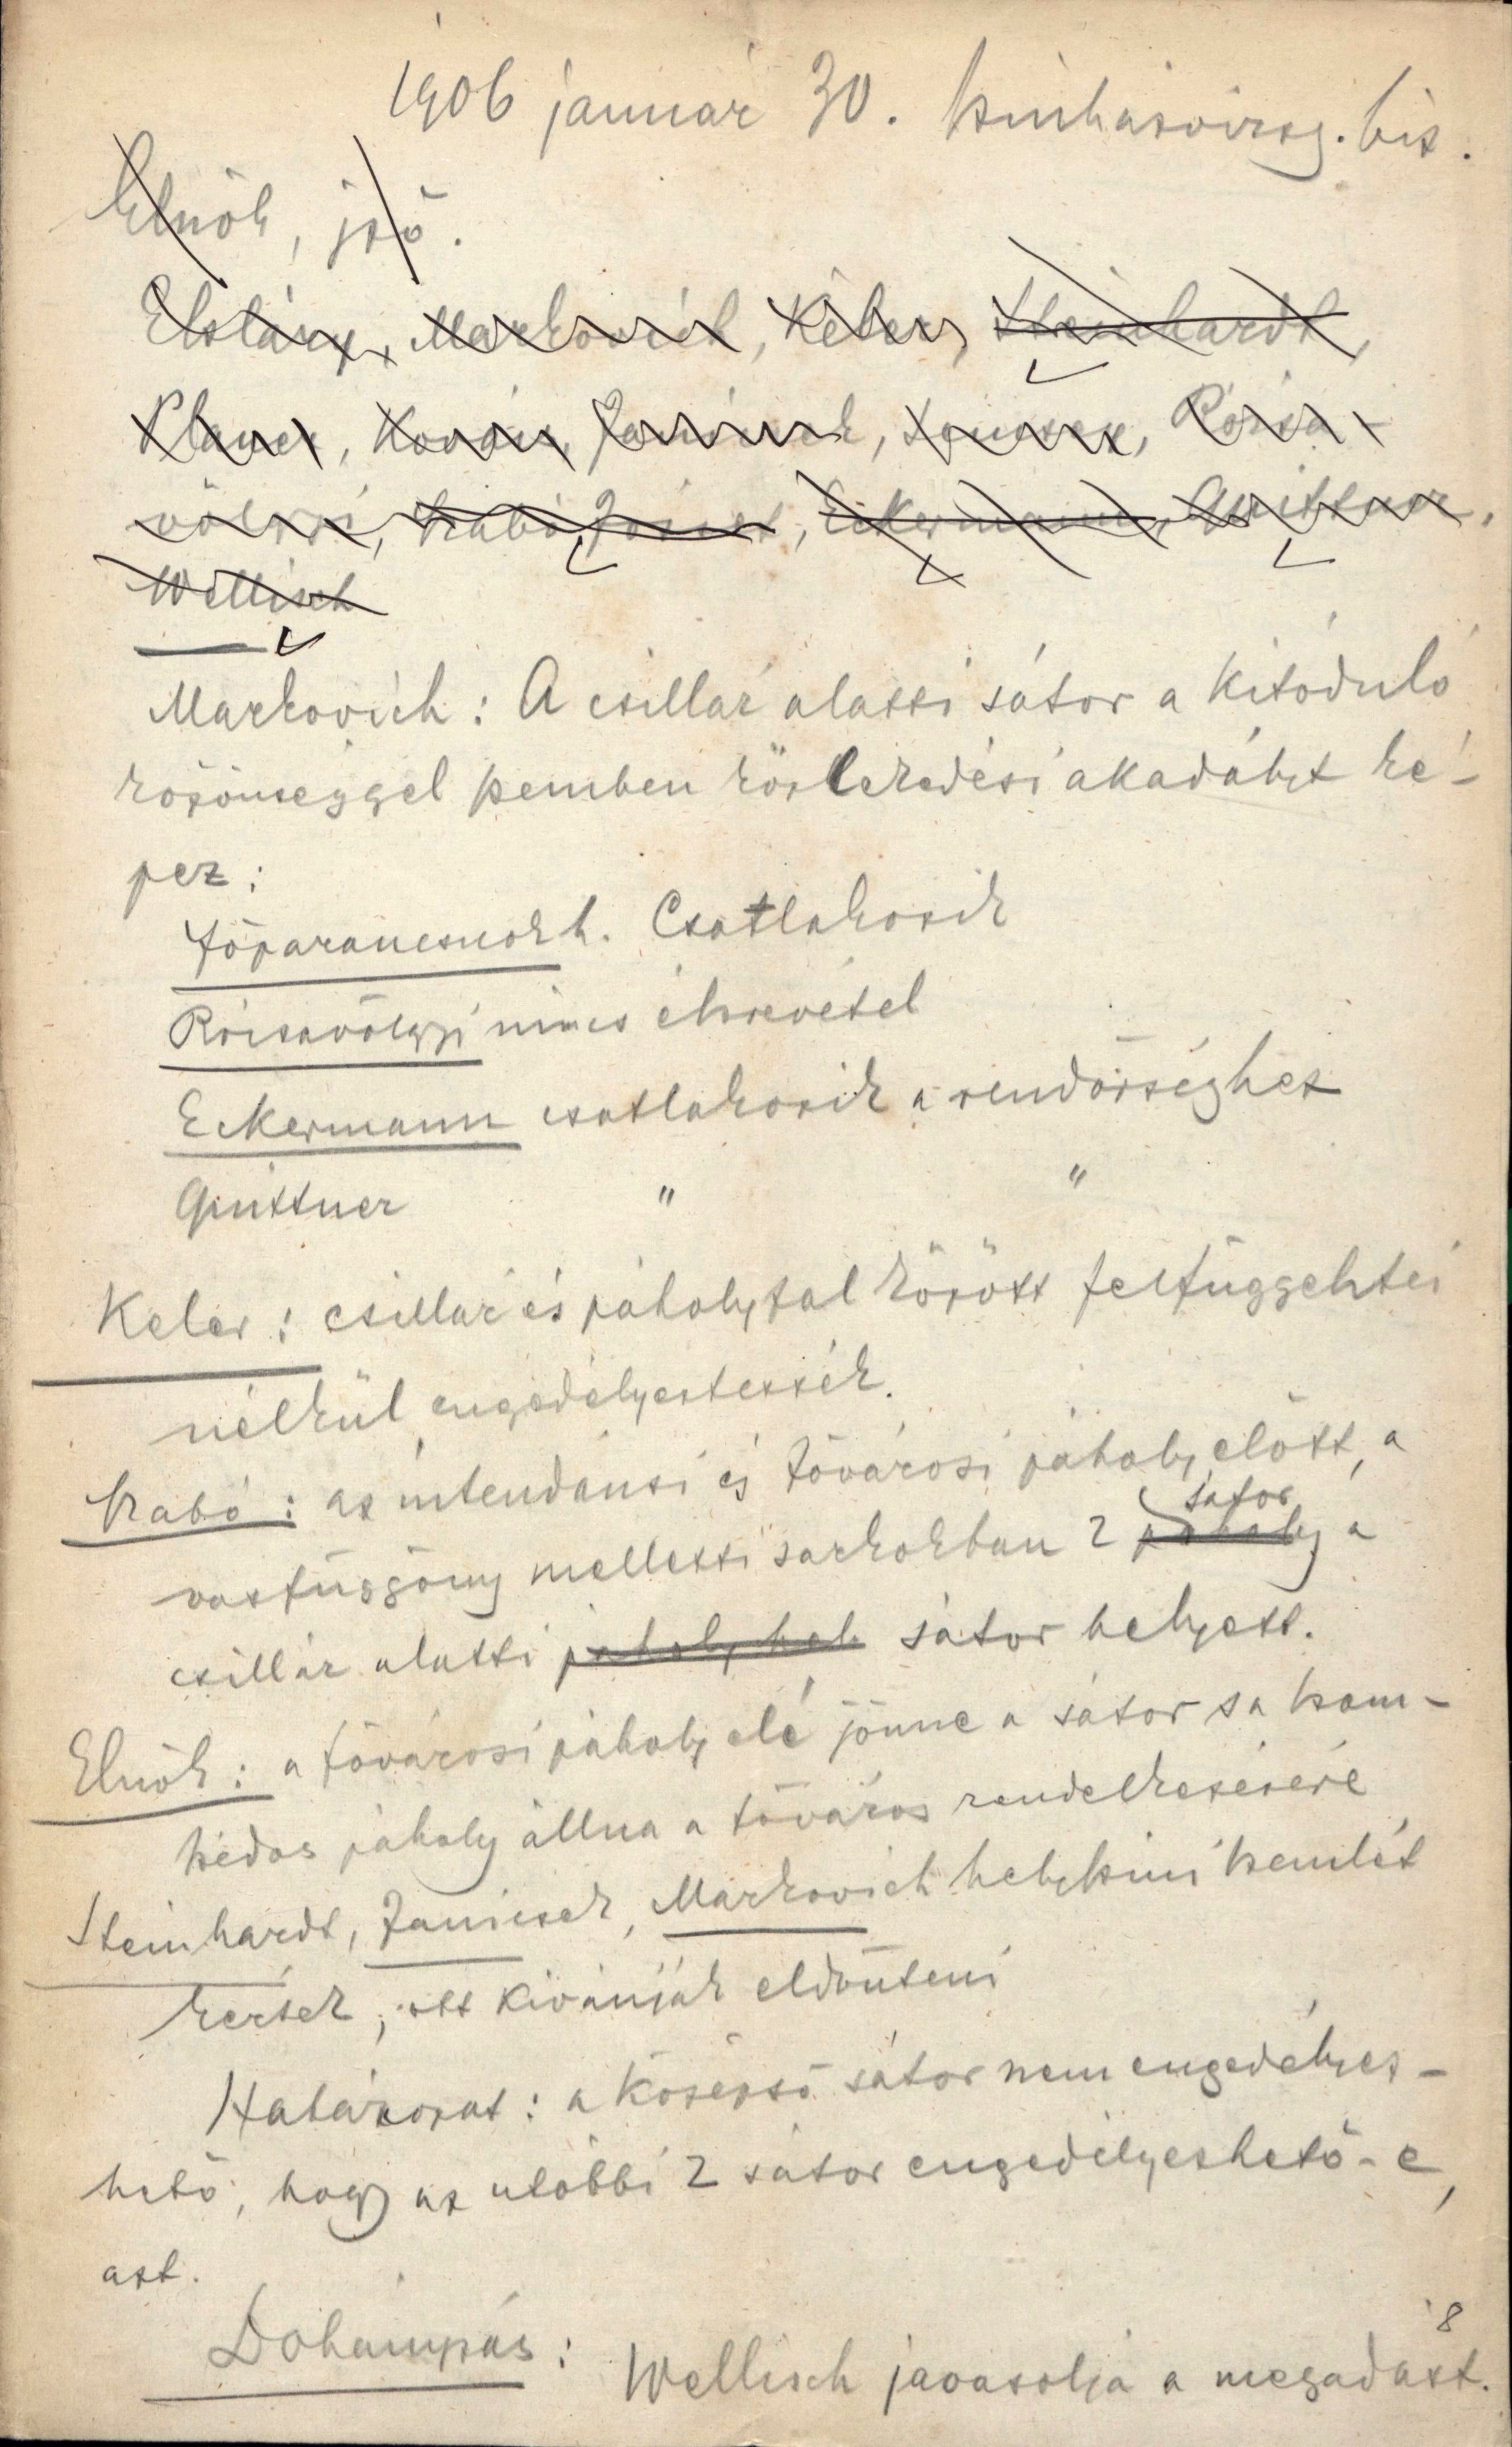 1906 január 30. Szinházvizsg. biz.
Elnök, jző.
Markovich, Kéler, Steinhardt,
Klauer, Kovács, Janicsek, Rózsa-
völgyi, Szabó József, Eckermann, Quittner,
Wellisch
Markovich: A csillár alatti sátor a kitóduló
közönséggel szemben közlekedési akadályt ké-
pez:
Főparancsnok h. Csatlakozik
Rózsavölgyi nincs észrevétel
Eckermann csatlakozik a rendőrséghez
Quittner " "
Keler: csillár és páholyfal között felfüggehtés
nélkül engedélyeztessék.
Szabó: az intendánsi és fővárosi páholy előtt, a
vasfüggöny melletti sarkokban 2 páholy sátor a
csillár alatti sátor helyett.
Elnök: a fővárosi páholy elé jönne a sátor s a szom-
szédos páholy állna a főváros rendelkezésére
Steinhardt, Janicsek, Markovich helyszini szemlét
kértek, ott kivánják eldönteni
Határozat: a középső sátor nem engedélyez-
hető, hogy az utóbbi 2 sátor engedélyezhető-e,
azt.
Dohányzás: Wellisch javasolja a megadást.
8